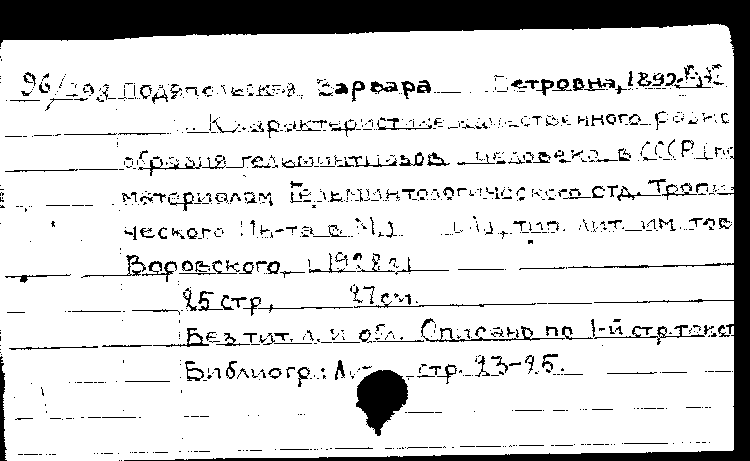 96/298 Подяпольская, Варвара Петровна, 1892-
К характеристике качественного разно
образия гельминтиазов человека в СССР (по
материалам Гельминтологического отд. Тропи
ческого Ин-та в М.) тип. лит. им. тов
Воровского, [1928г]
25 стр, 27 см.
Без тит. л. и обл. Описано по 1-й стр. текст
Библиогр.: стр. 23-25.